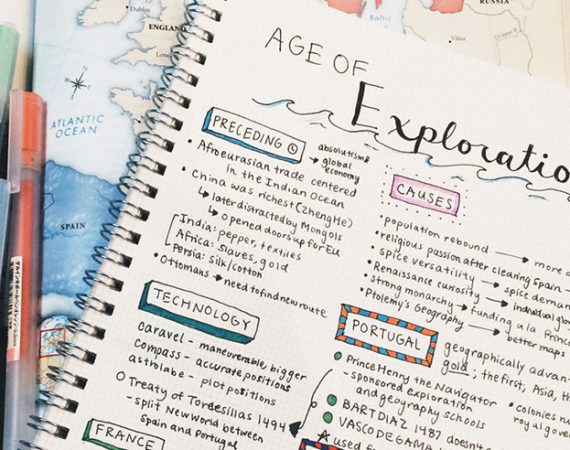 Dublin
ENGLAND
Baltic
RUSSIA
Vilna
ATLANTIC
OCEAN
SPAIN
AGE OF
Exploratio
PRECEDING
absolutism &
→ global
economy
• Afroeurasian trade centered
in the Indian Ocean
• China was richest (Zheng He)
↳ later distracted by Mongols
↳ opened doors up for EU
India: pepper, textiles
Africa: Slaves, gold
Persia: silk/cotton
• Ottomans → need to find new route
CAUSES
• population rebound → more
• religious passion after clearing Spain
• spice versatility → spice deman
• Renaissance curiosity → individual glo
• strong monarchy → funding a la Prince
• Ptolemy's Geography → better maps
TECHNOLOGY
caravel - maneuverable, bigger
compass - accurate positions
astrolabe - plot positions
O Treaty of Tordesillas 1494
- split New World between
Spain and Portugal
PORTUGAL
geographically advan
gold; the first, Asia, th
Prince Henry the Navigator
- sponsored exploration
and geography schools
• colonies
royal gove
BART DIAZ 1487 doesn't
VASCO DE GAMA
used f
FRANCE